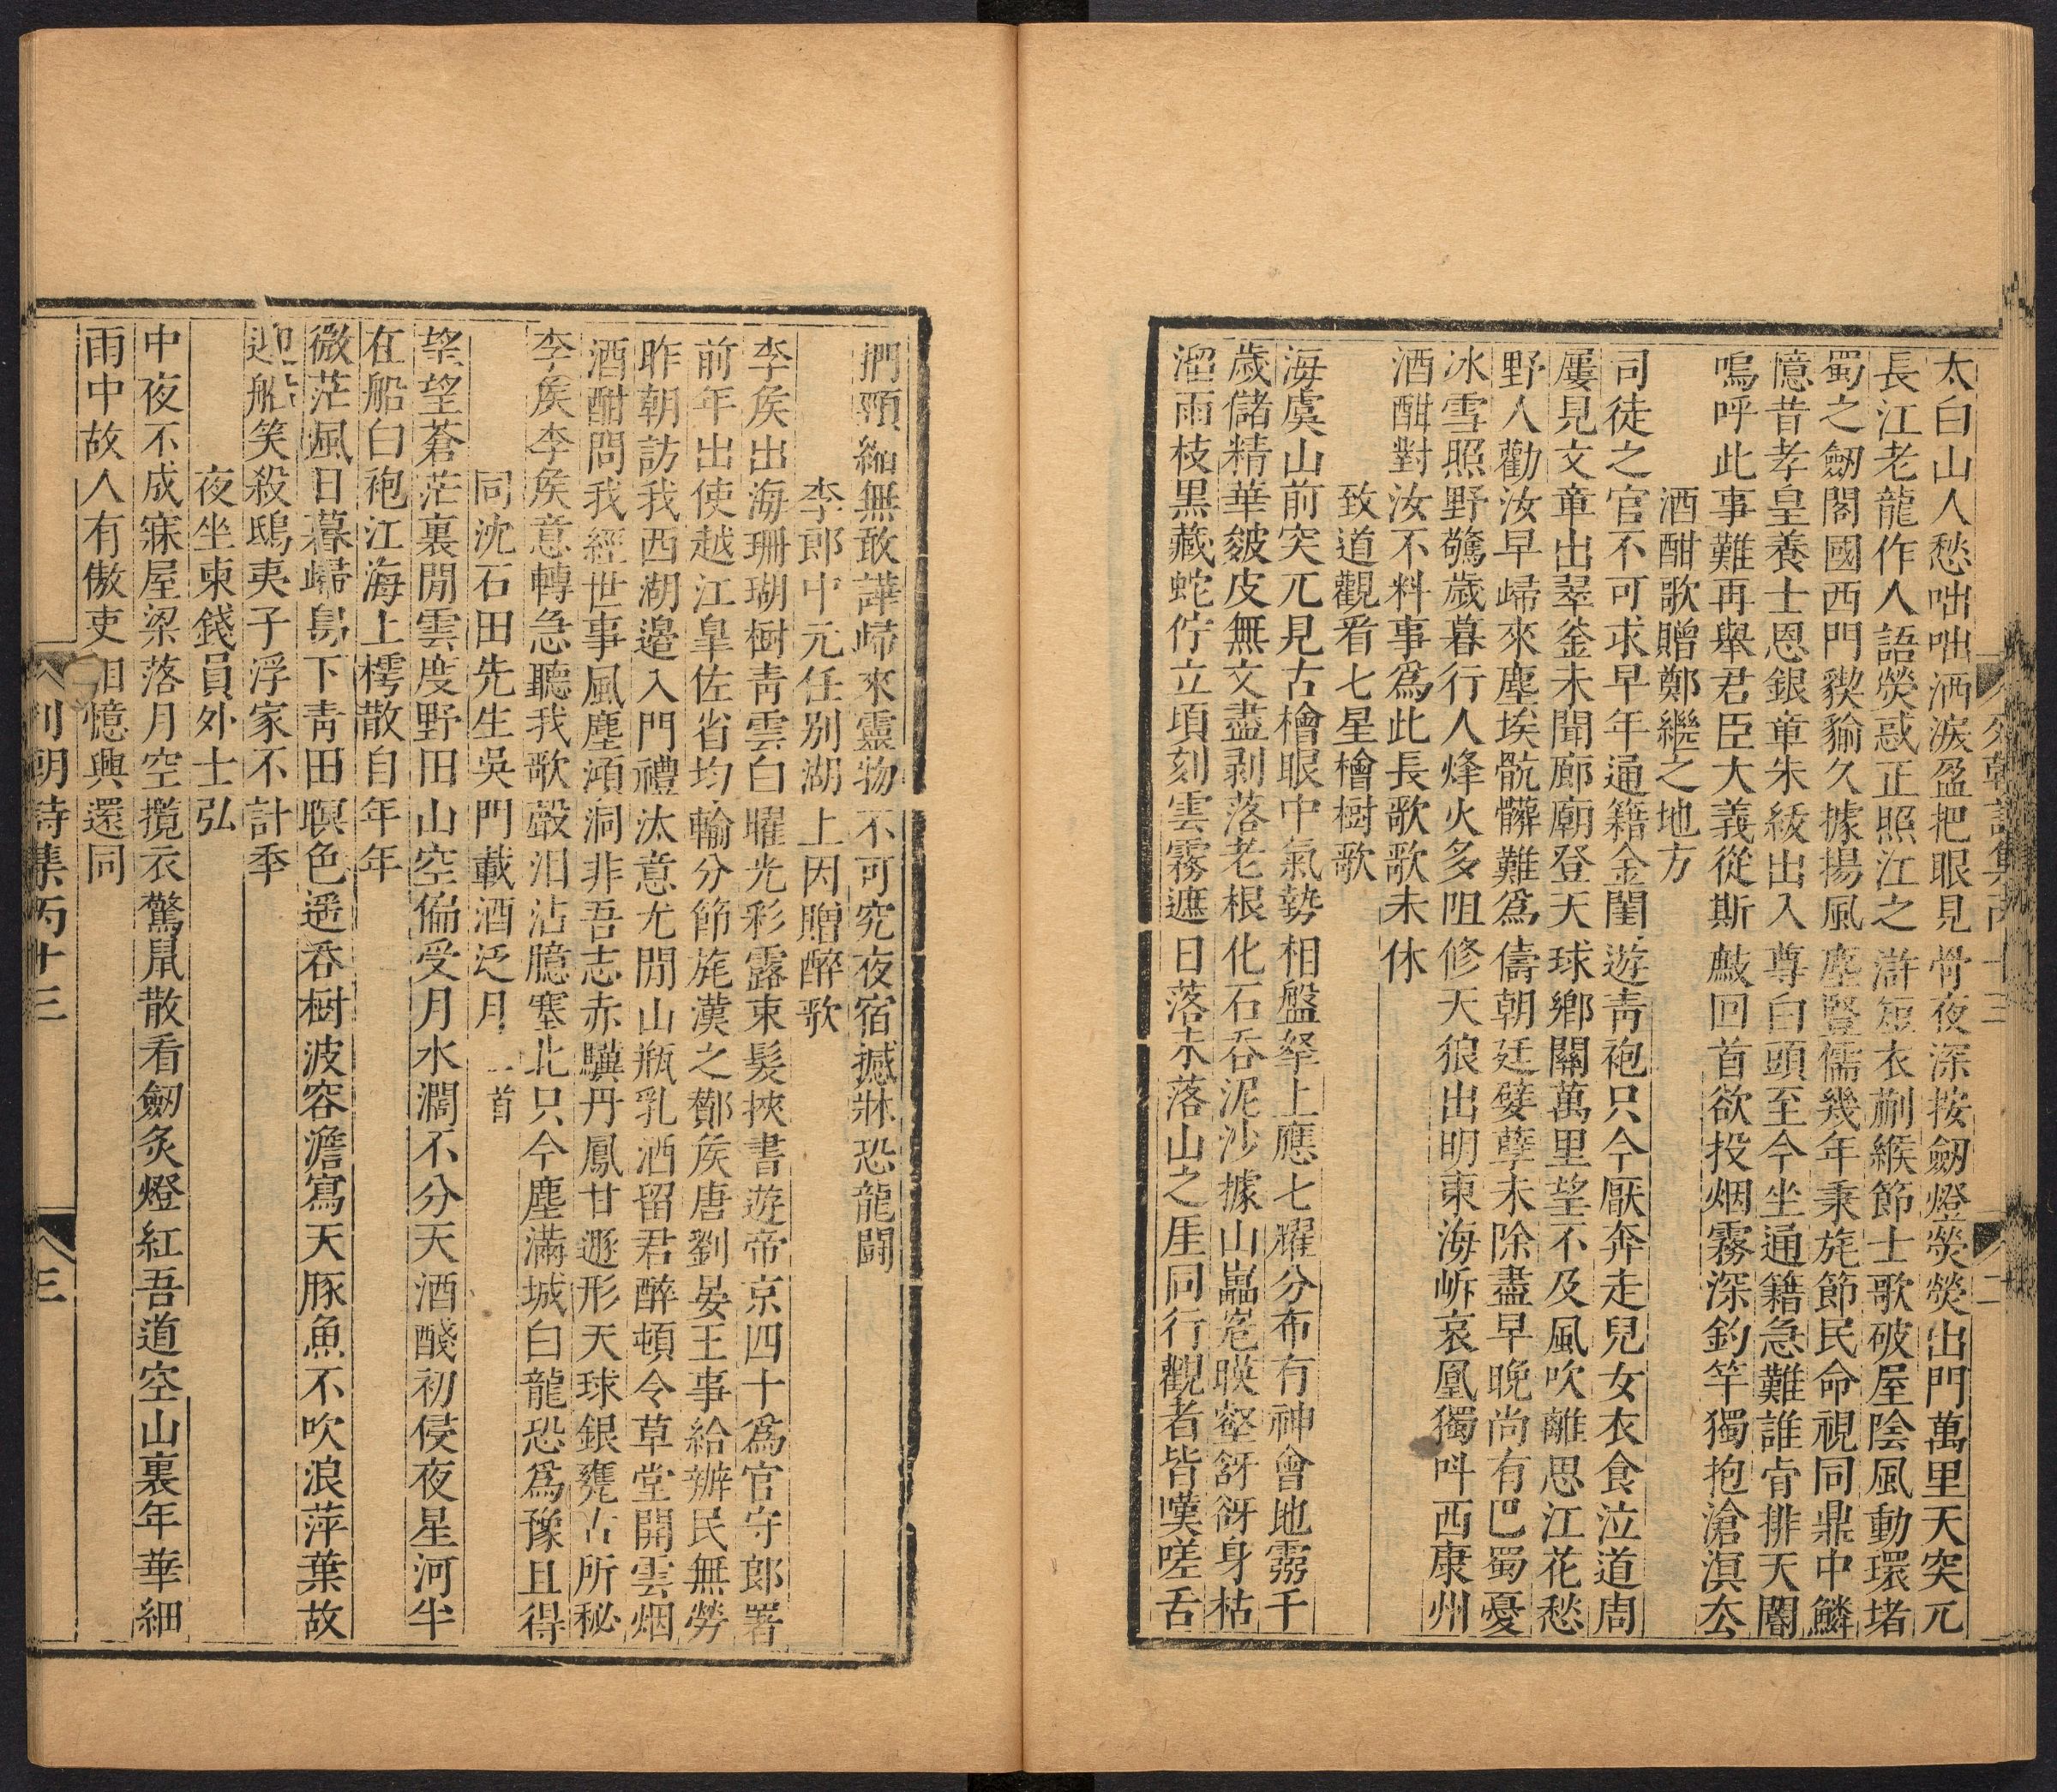 太白山人愁咄咄洒淚盈把眼見骨夜深按劒燈熒熒出門萬里天突兀
長江老龍作人語熒惑正照江之滸短衣蒯緱節士歌破屋陰風動環堵
蜀之劒閣國西門猰貐久據揚風塵豎儒幾年秉旄節民命視同鼎中鱗
憶昔孝皇養士恩銀章朱綬出入尊白頭至今坐通籍急難誰肯排天閽
嗚呼此事難再舉君臣大義從斯斁回首欲投烟霧深釣竿獨抱滄溟去
酒酣歌贈鄭繼之地方
司徒之官不可求早年通籍金閨遊靑袍只今厭奔走兒女衣食泣道周
屢見文章出翠釜未聞廊廟登天球鄉關萬里望不及風吹離思江花愁
野人勸汝早歸來塵埃骯髒難爲儔朝廷孽孽未除盡早晚尚有巴蜀憂
冰雪照野驚歲暮行人烽火多阻修天狼出明東海㟁哀凰獨呌西康州
酒酣對汝不料事爲此長歌歌未休
致道觀看七星檜樹歌
海虞山前突兀見古檜眼中氣勢相盤拏上應七耀分布有神會地靈千
歲儲精華皴皮無文盡剥落老根化石呑泥沙據山巃嵸暎壑谺谺身枯
溜雨枝黒藏蛇佇立頃刻雲霧遮日落未落山之厓同行觀者皆嘆嗟舌
捫頸縮無敢譁歸來靈物不可究夜宿撼牀恐龍鬪
李郎中元任别湖上因贈醉歌
李矦出海珊瑚樹靑雲白曜光彩露束髮挾書遊帝京四十爲官守郎署
前年出使越江臯佐省均輸分節旄漢之酇矦唐劉晏王事給辦民無勞
昨朝訪我西湖邉入門禮汰意尤閒山瓶乳洒留君醉頓令草堂開雲烟
酒酣問我經世事風塵澒洞非吾志赤驥丹鳳甘遯形天球銀甕古所秘
李矦李矦意轉急聽我歌嚴汨沾臆塞北只今塵滿城白龍恐爲豫且得
同沈石田先生吳門載酒泛月二首
望望蒼茫裏閒雲度野田山空偏受月水濶不分天酒醆初侵夜星河半
在船白袍江海上樗散自年年
微茫風日暮歸舃下靑田暝色遥呑樹波容澹寫天豚魚不吹浪萍葉故
迎船笑殺鴟夷子浮家不計季
夜坐柬錢員外士弘
中夜不成寐屋梁落月空攬衣驚鼠散看劒炙燈紅吾道空山裏年華細
雨中故人有傲吏相憶興還同
列朝詩集丙十三
三